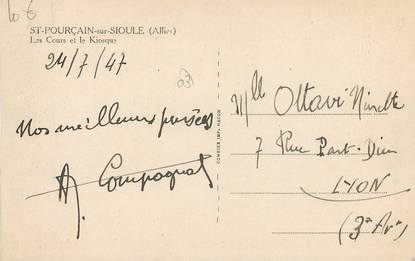 ST-POURÇAIN-sur-SIOULE (Allier)
Les Cours et le Kiosque
24/7/47
Nos meilleures pensées
A. Compagnat
COMBIER IMP. MACON
Mlle Ottavi Ninette
7 Rue Part-Dieu
LYON
(3e Arr)